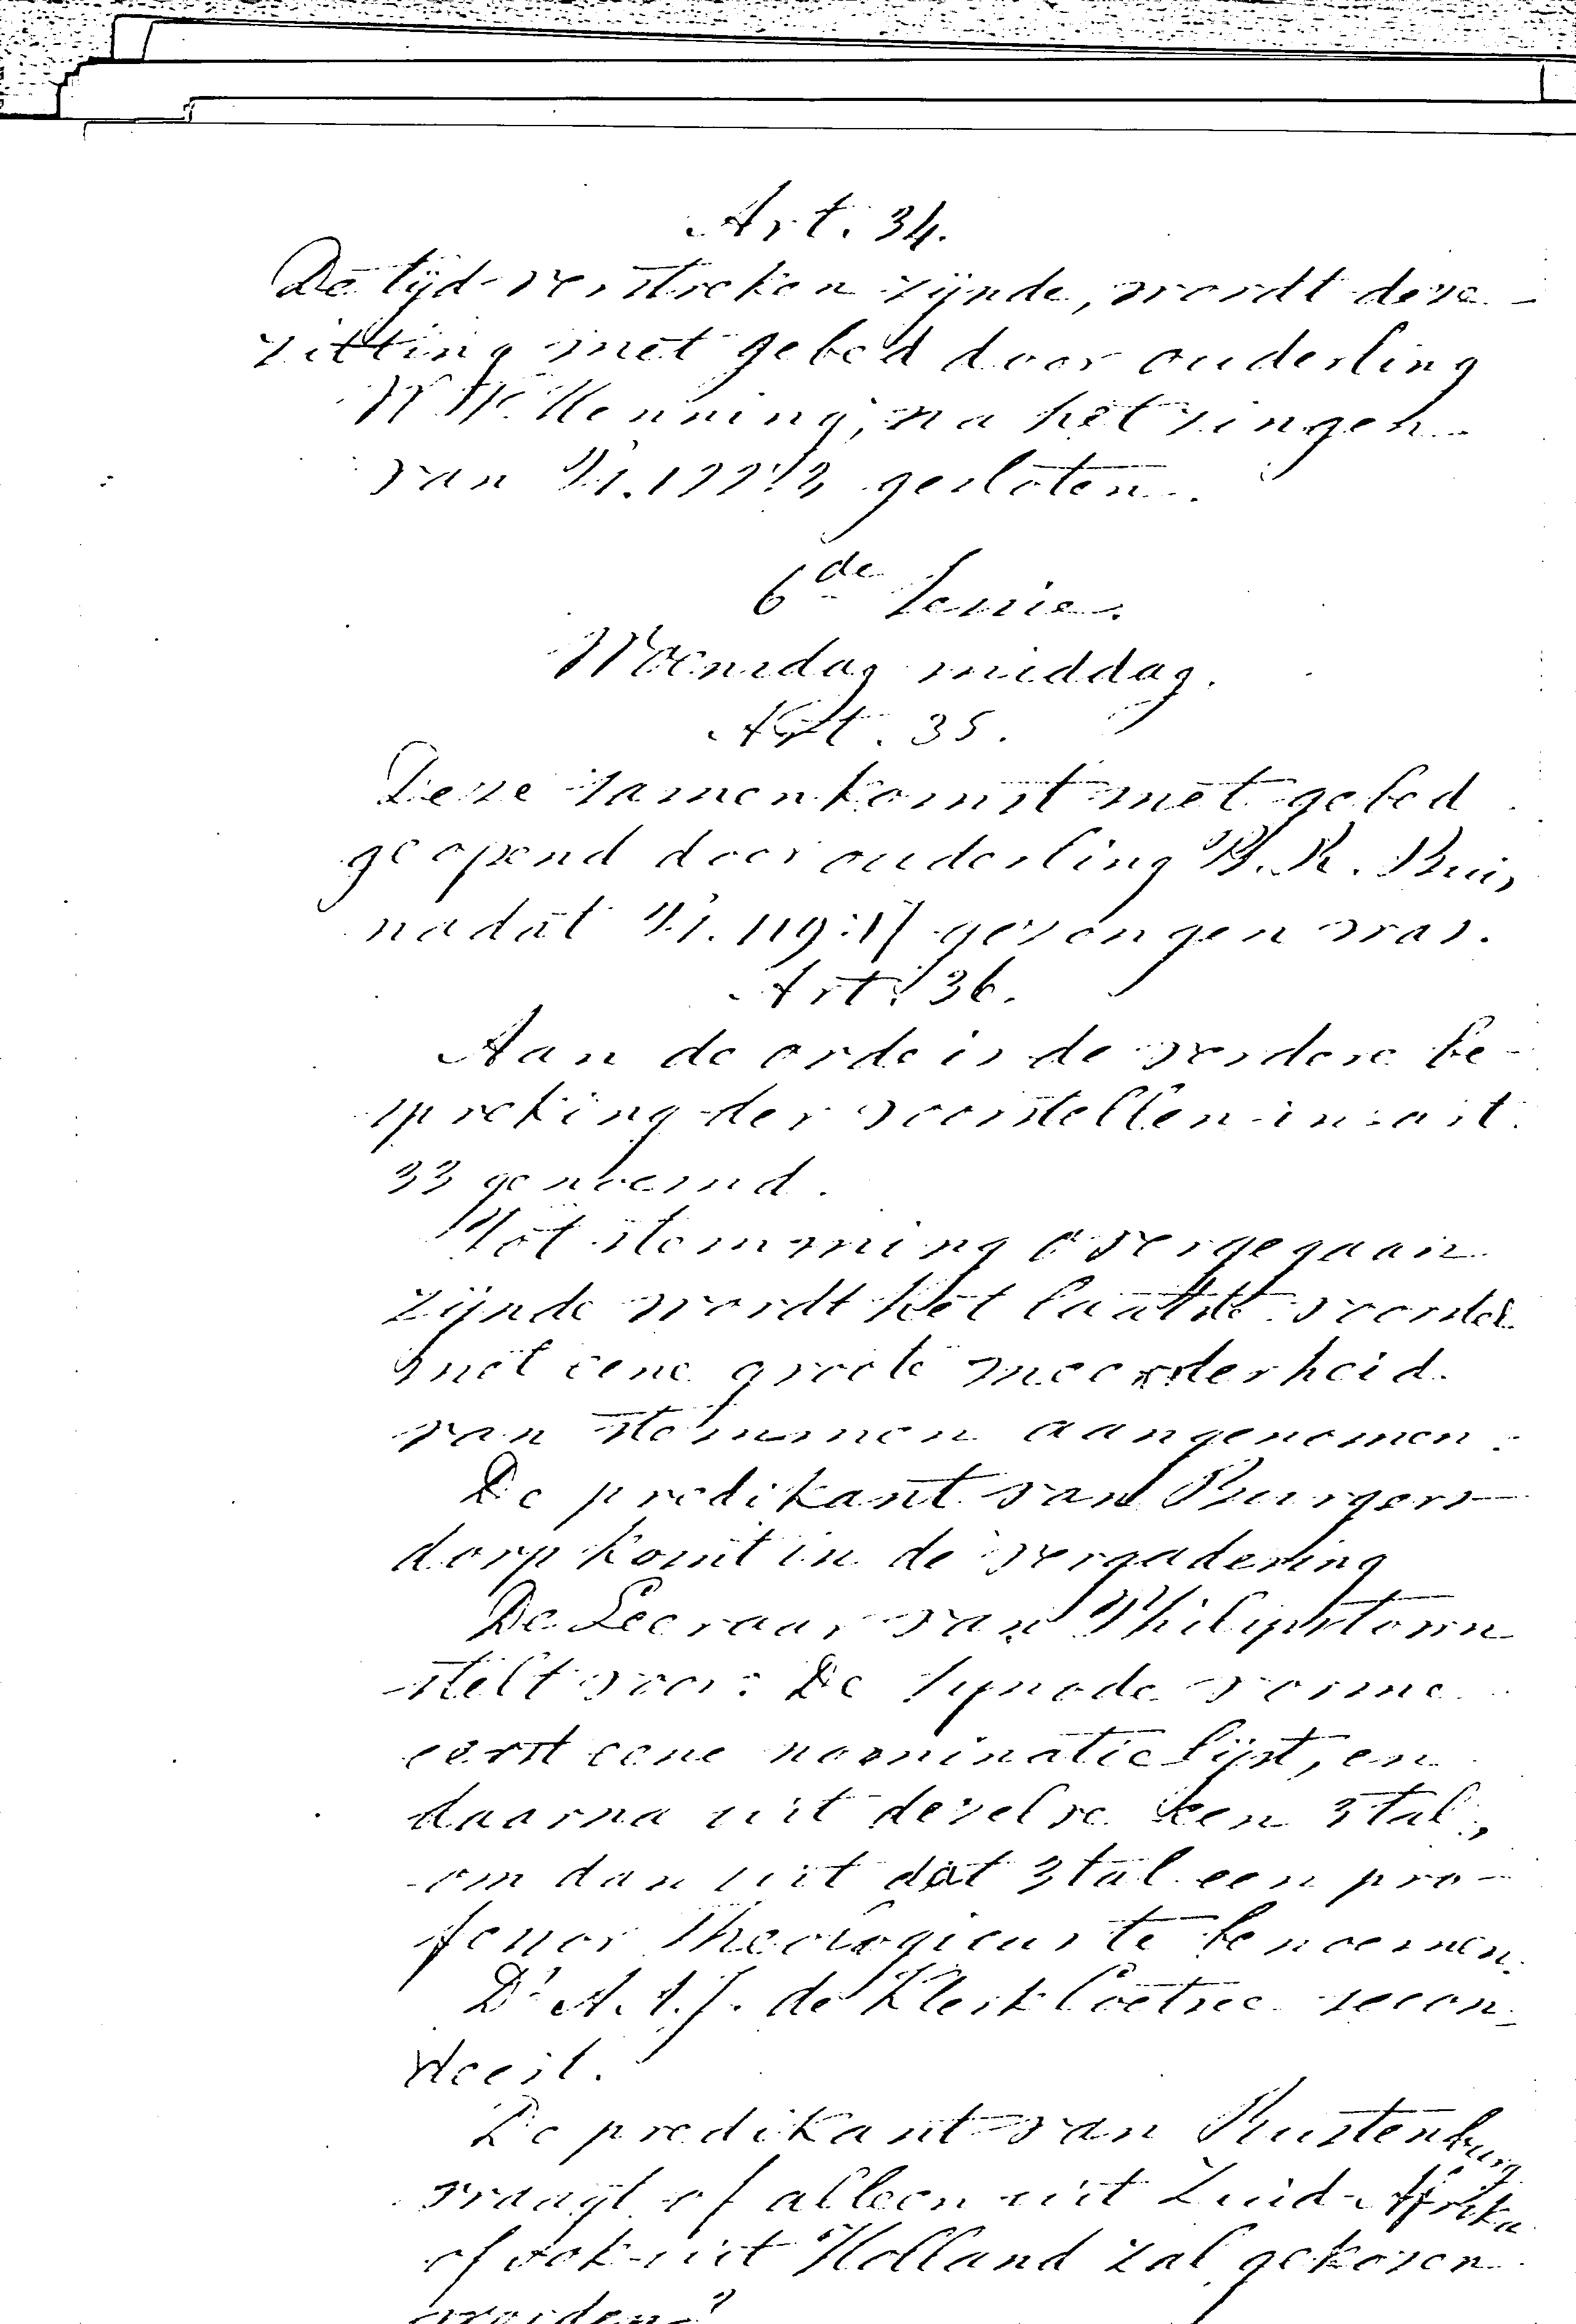 Art. 34.
De tijd verstreken zijnde, wordt deze
zitting met gebed door ouderling
Venning, na het zingen
van Ps. gesloten.
6de Sessie.
Woensdag middag.
Art. 35.
Deze samenkomst met gebed
geopend door ouderling
nadat Ps. 119: gezongen was.
Art. 36.
Aan de orde is de verdere be-
spreking der voorstellen in art.
33 genoemd.
Tot stemming overgegaan
zijnde wordt het laatste voorstel
met eene groote meerderheid
van stemmen aangenomen.
De predikant van Burgers-
dorp komt in de vergadering
De Leeraar van Philipstown
stelt voor: De Synode vorme
eerst eene nominatie lijst, en
daarna uit dezelve een 3tal,
om dan uit dat 3tal een pro-
fessor Theologicus te benoemen.
Ds A. A. J. de Klerk Coetzee secon-
deert.
De predikant van Rustenburg
vraagt of alleen uit Zuid-Afrika
of ook uit Holland zal gekozen
worden?